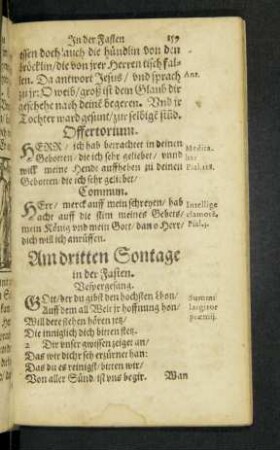 In der Fasten 159
essen doch auch die hündlin von den
bröcklin/die von jrer Herren tisch fal-
len. Da antwort Jesus/ vnd sprach
zu jr: O weib/ groß ist dein Glaub dir
geschehe nach deinē begeren. Vnd jr
Tochter ward gesunt/zur selbigē stūd.
Offertorium.
HERR/ ich hab betrachtet in deinen
Gebotten/ die ich sehr geliebet/ vnnd
will meine Hende auffheben zu deinen
Gebotten/ die ich sehr geliebet/
Commun.
HErr/ merck auff mein schreyen/ hab
acht auff die stim meines Gebets/
mein König vnd mein Got/ dan o Herr/
dich will ich anrüffen.
Am dritten Sontage
in der Fasten.
Vespergesang.
GOtt/ der du gibst den höchsten lhon/
Auff dem all Welt jr hoffnung hon/
Will dere flehen hören yetz/
Die inniglich dich bitten stetz.
2 Dir vnser gwissen zeiget an/
Das wir dich sehr erzürnet han:
Das du es reinigst/ bitten wir/
Von aller Sünd ist vns begir. Wan
Ant.
Medita-
bar
Intellige
clamorē,
Summi
largitor
præmij.